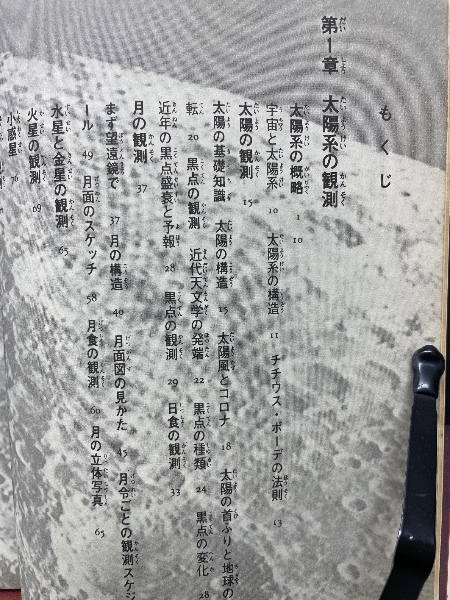 もくじ
第1章 太陽系の観測
太陽系の概略 1
宇宙と太陽系 10 太陽系の構造 11 チチウス・ボーデの法則 13
太陽の観測 15
太陽の基礎知識 太陽の構造 15 太陽風とコロナ 18 太陽の首ふりと地球の
転 20 黒点の観測 近代天文学の発端 22 黒点の種類 24 黒点の変化 28
近年の黒点盛衰と予報 28 黒点の観測 29 日食の観測 33
月の観測 37
まず望遠鏡で 37 月の構造 40 月面図の見かた 45 月令ごとの観測スケジ
ール 49 月面のスケッチ 58 月食の観測 60 月の立体写真 65
水星と金星の観測 65
火星の観測 69
小惑星 76